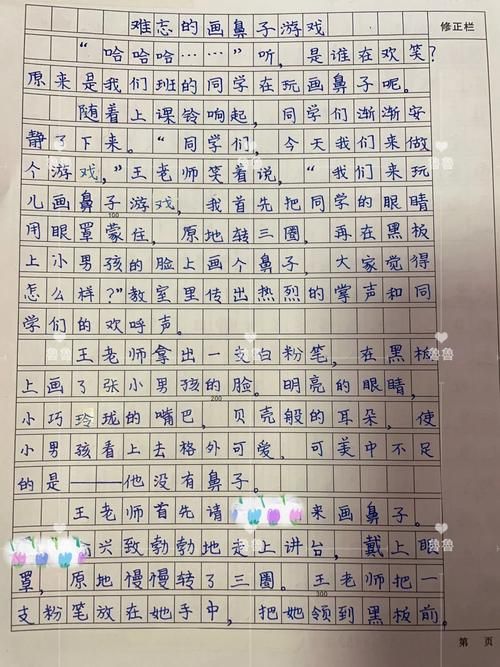 难忘的画鼻子游戏
修正栏
“哈哈哈……”听，是谁在欢笑？
原来是我们班的同学在玩画鼻子呢。
随着上课铃响起，同学们渐渐安
静了下来。“同学们，今天我们来做
个游戏，”王老师笑着说，“我们来玩
儿画鼻子游戏，我首先把同学的眼睛
100
用眼罩蒙住，原地转三圈，再在黑板
上小男孩的脸上画个鼻子，大家觉得
怎么样？”教室里传出热烈的掌声和同
学们的欢呼声。
王老师拿出一支白粉笔，在黑板
上画了张小男孩的脸。明亮的眼睛，
200
小巧玲珑的嘴巴，贝壳般的耳朵，使
小男孩看上去格外可爱，可美中不足
的是——他没有鼻子。
王老师首先请来画鼻子。
兴致勃勃地走上讲台，戴上眼
罩，原地慢慢转了三圈。王老师把一
支粉笔放在她手中，把她领到黑板前。
第 页
鲁鲁
鲁鲁
鲁鲁
鲁鲁
鲁鲁
鲁鲁